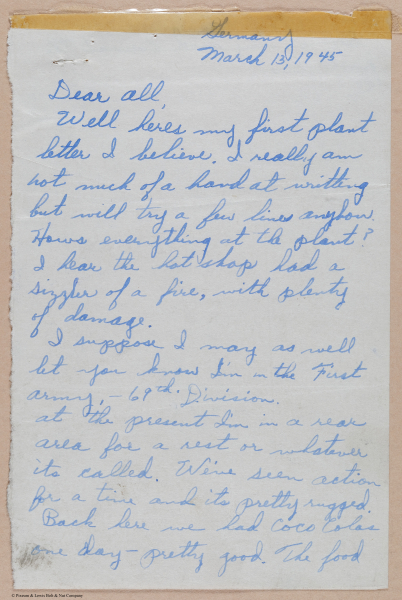 Germany
March 13, 1945
Dear all,
Well heres my first plant
letter I believe. I really am
not much of a hand at writting
but will try a few lines anyhow.
Hows everything at the plant?
I hear the hot shop had a
sizzler of a fire, with plenty
of damage.
I suppose I may as well
let you know I'm in the First
army, - 69th Division.
at the present I'm in a rear
area for a rest or whatever
its called. We've seen action
for a time and its pretty rugged.
Back here we had Coco Colas
one day - pretty good. The food
© Pheoll & Lewis Bolt & Nut Company